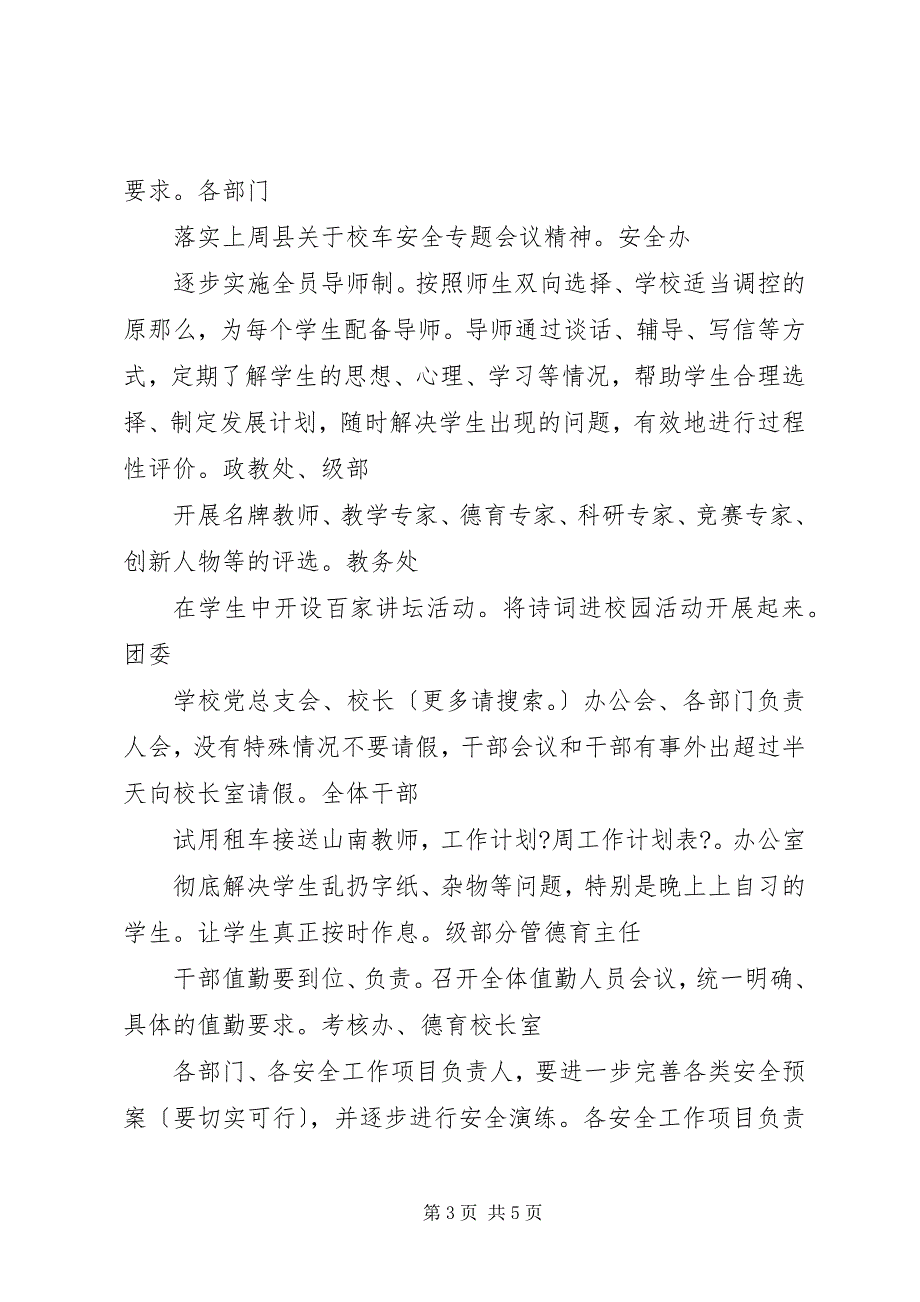 要求。各部门
落实上周县关于校车安全专题会议精神。安全办
逐步实施全员导师制。按照师生双向选择、学校适当调控的
原那么，为每个学生配备导师。导师通过谈话、辅导、写信等方
式，定期了解学生的思想、心理、学习等情况，帮助学生合理选
择、制定发展计划，随时解决学生出现的问题，有效地进行过程
性评价。政教处、级部
开展名牌教师、教学专家、德育专家、科研专家、竞赛专家、
创新人物等的评选。教务处
在学生中开设百家讲坛活动。将诗词进校园活动开展起来。
团委
学校党总支会、校长〔更多请搜索。〕办公会、各部门负责
人会，没有特殊情况不要请假，干部会议和干部有事外出超过半
天向校长室请假。全体干部
试用租车接送山南教师，工作计划?周工作计划表?。办公室
彻底解决学生乱扔字纸、杂物等问题，特别是晚上上自习的
学生。让学生真正按时作息。级部分管德育主任
干部值勤要到位、负责。召开全体值勤人员会议，统一明确、
具体的值勤要求。考核办、德育校长室
各部门、各安全工作项目负责人，要进一步完善各类安全预
案〔要切实可行〕，并逐步进行安全演练。各安全工作项目负责
第 3 页 共 5 页